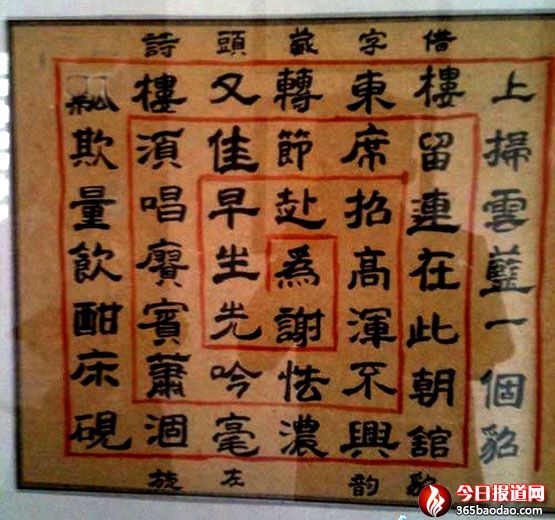 借字藏頭詩
上掃雲藍一個貂
樓留連在此朝館
東席招高渾不興
轉節赴爲謝怯濃
又佳早生先吟毫
樓須唱賡賓蕭
瓢欺量飲酣床硯
韵左旋
今日报道网
365baodao.com